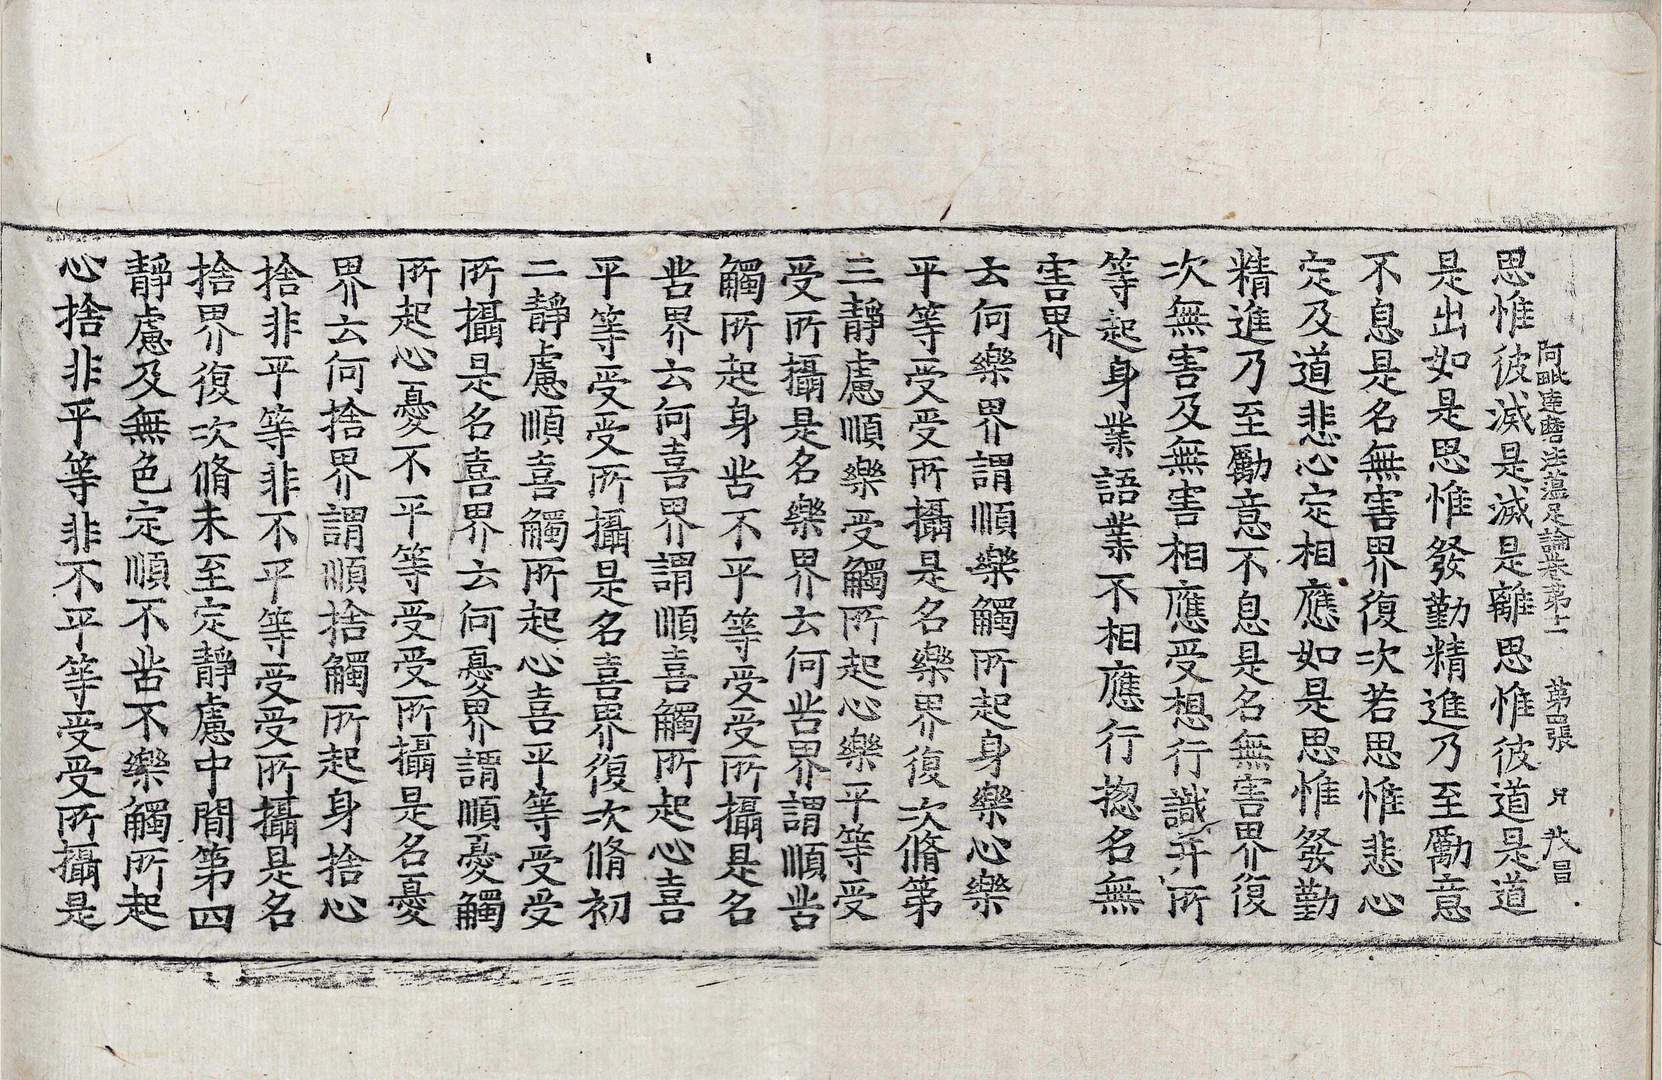 阿毗達磨法蘊足論卷第十一 第四張 月 茂昌
思惟彼滅是滅是離思惟彼道是道
是出如是思惟發勤精進乃至勵意
不息是名無害界復次若思惟悲心
定及道悲心定相應如是思惟發勤
精進乃至勵意不息是名無害界復
次無害及無害相應受想行識并所
等起身業語業不相應行揔名無
害界
云何樂界謂順樂觸所起身樂心樂
平等受受所攝是名樂界復次脩第
三靜慮順樂受觸所起心樂平等受
受所攝是名樂界云何苦界謂順苦
觸所起身苦不平等受受所攝是名
苦界云何喜界謂順喜觸所起心喜
平等受受所攝是名喜界復次脩初
二靜慮順喜觸所起心喜平等受受
所攝是名喜界云何憂界謂順憂觸
所起心憂不平等受受所攝是名憂
界云何捨界謂順捨觸所起身捨心
捨非平等非不平等受受所攝是名
捨界復次脩未至定靜慮中間第四
靜慮及無色定順不苦不樂觸所起
心捨非平等非不平等受受所攝是